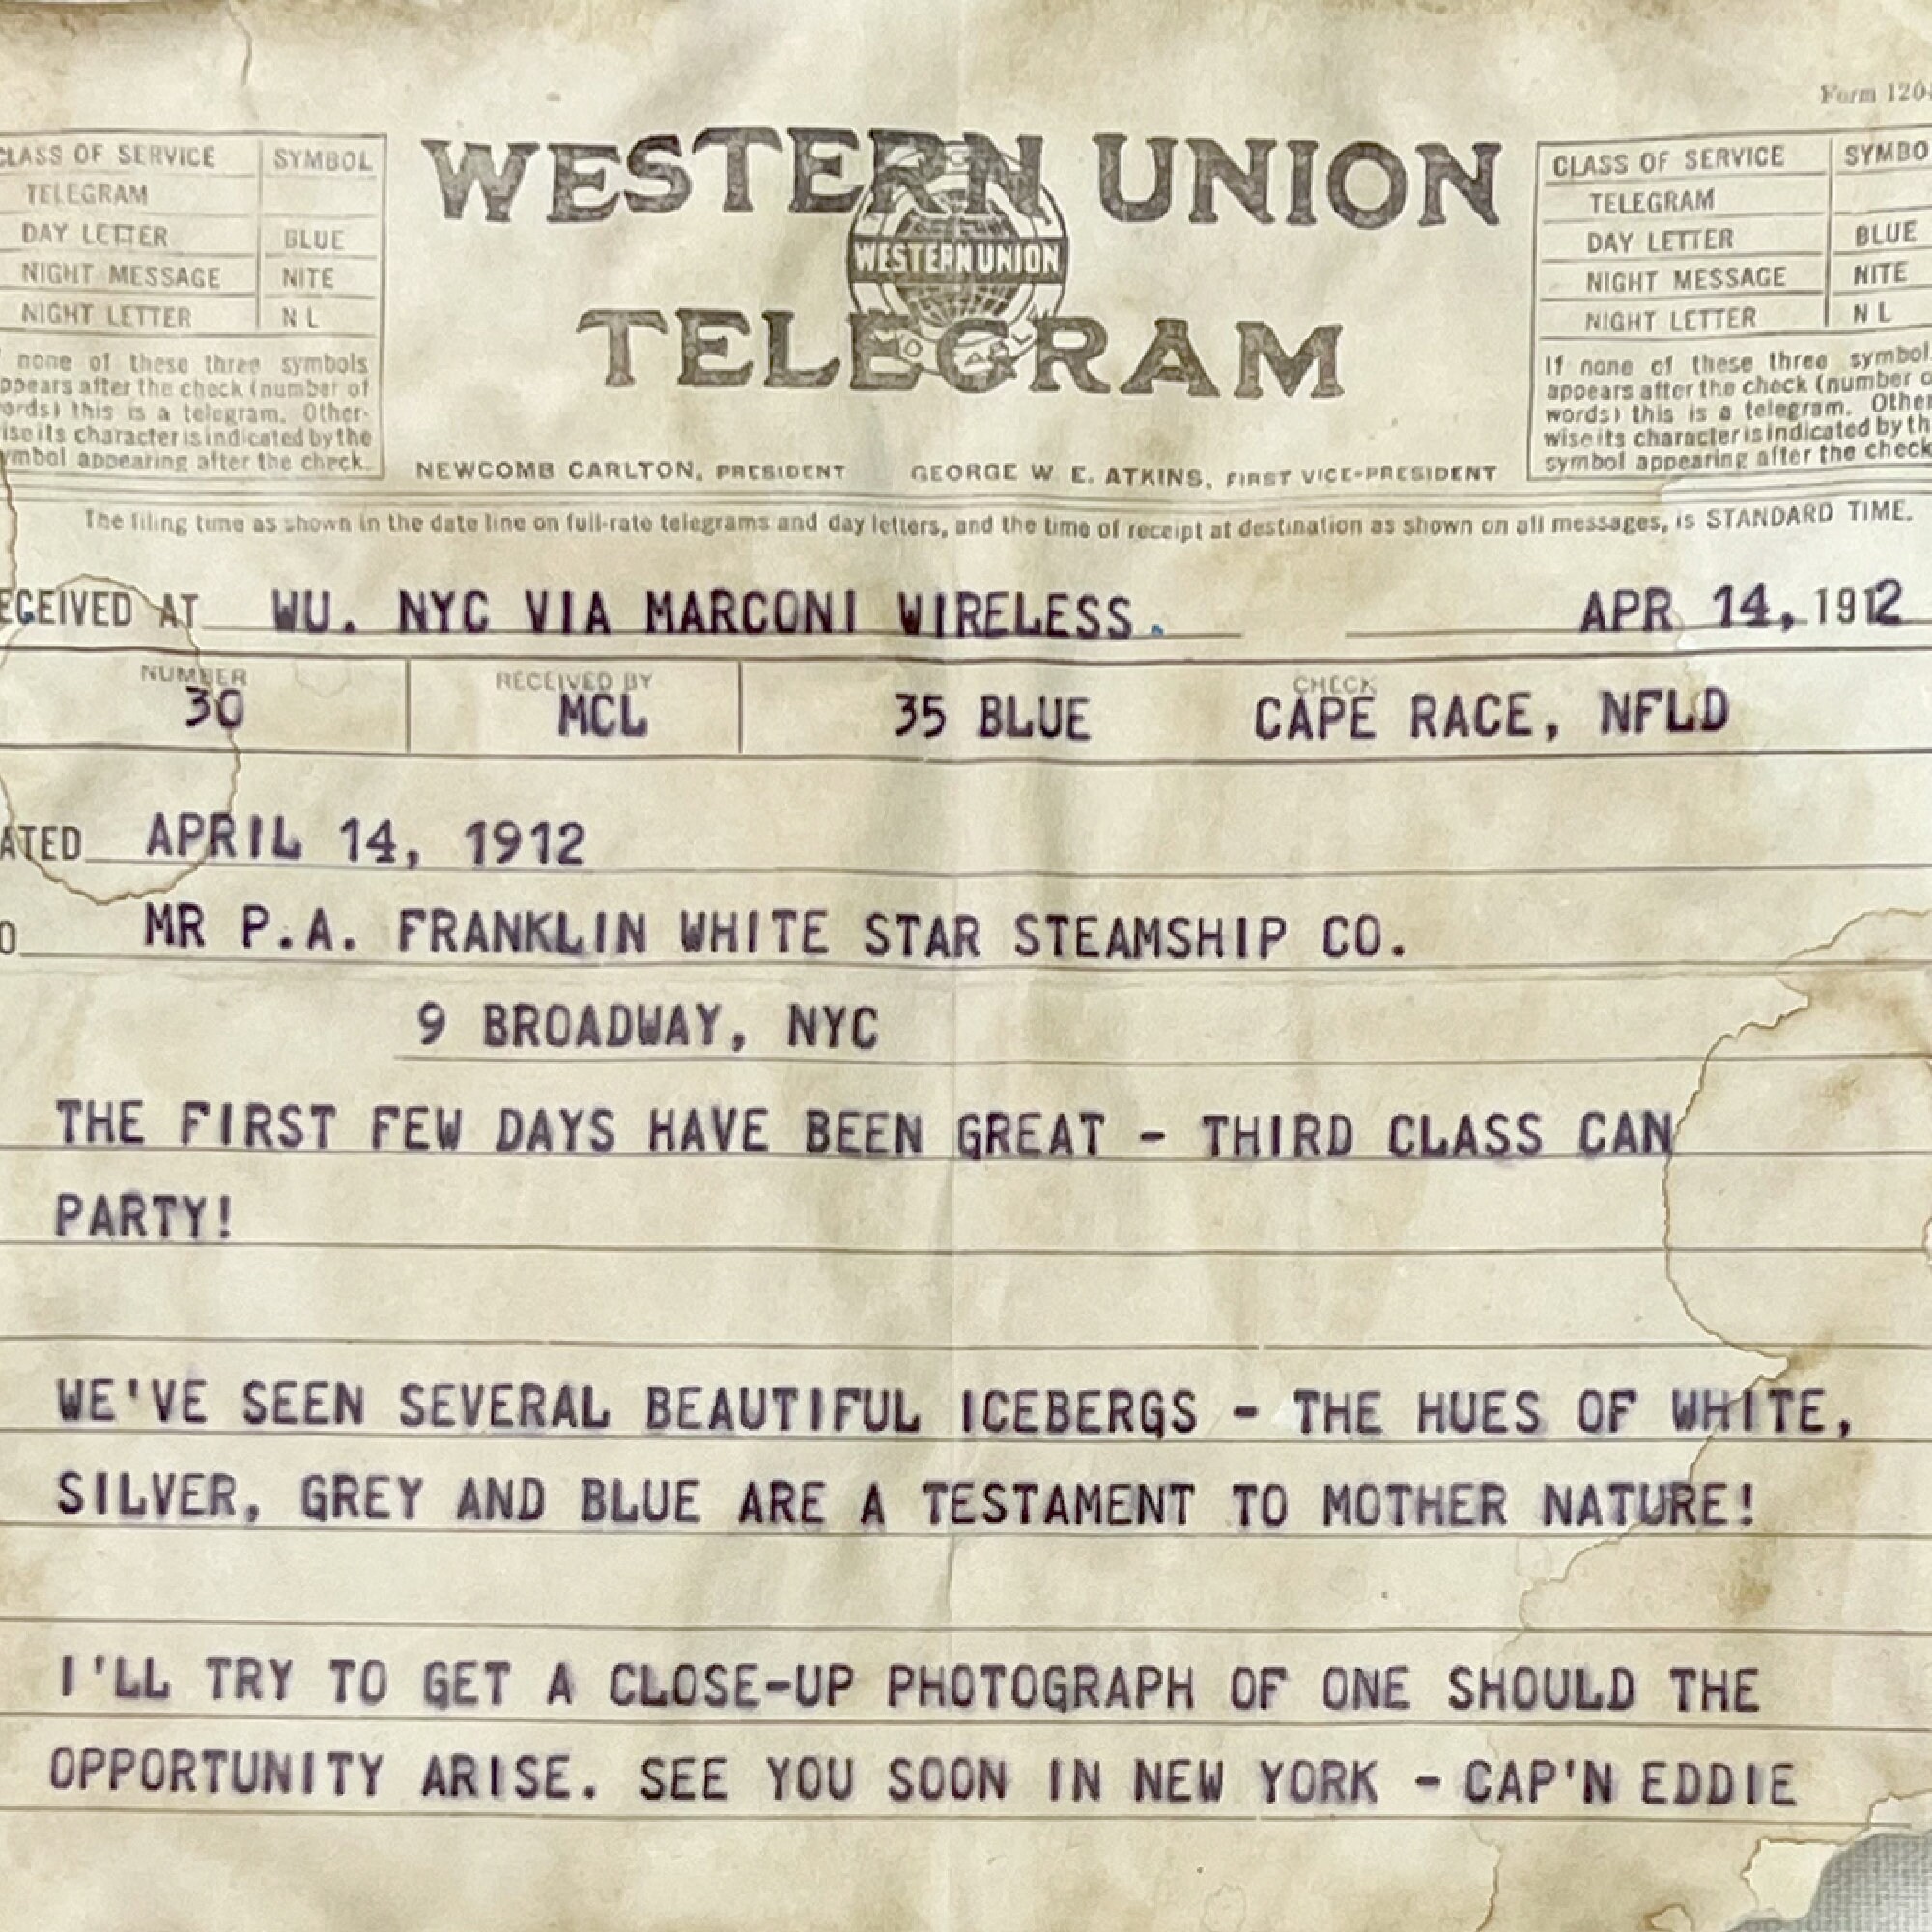 Form 120
CLASS OF SERVICE SYMBOL
TELEGRAM
DAY LETTER BLUE
NIGHT MESSAGE NITE
NIGHT LETTER N L
none of these three symbols
ppears after the check (number of
ords) this is a telegram. Other-
ise its character is indicated by the
ymbol appearing after the check.
WESTERN UNION
WESTERN UNION
TELEGRAM
NEWCOMB CARLTON, PRESIDENT GEORGE W. E. ATKINS, FIRST VICE-PRESIDENT
CLASS OF SERVICE SYMBO
TELEGRAM
DAY LETTER BLUE
NIGHT MESSAGE NITE
NIGHT LETTER N L
If none of these three symbol
appears after the check (number o
words) this is a telegram. Other
wise its character is indicated by th
symbol appearing after the check
The filing time as shown in the date line on full-rate telegrams and day letters, and the time of receipt at destination as shown on all messages, is STANDARD TIME.
ECEIVED AT WU. NYC VIA MARCONI WIRELESS. APR 14, 1912
NUMBER RECEIVED BY CHECK
30 MCL 35 BLUE CAPE RACE, NFLD
ATED APRIL 14, 1912
O MR P.A. FRANKLIN WHITE STAR STEAMSHIP CO.
9 BROADWAY, NYC
THE FIRST FEW DAYS HAVE BEEN GREAT - THIRD CLASS CAN
PARTY!
WE'VE SEEN SEVERAL BEAUTIFUL ICEBERGS - THE HUES OF WHITE,
SILVER, GREY AND BLUE ARE A TESTAMENT TO MOTHER NATURE!
I'LL TRY TO GET A CLOSE-UP PHOTOGRAPH OF ONE SHOULD THE
OPPORTUNITY ARISE. SEE YOU SOON IN NEW YORK - CAP'N EDDIE